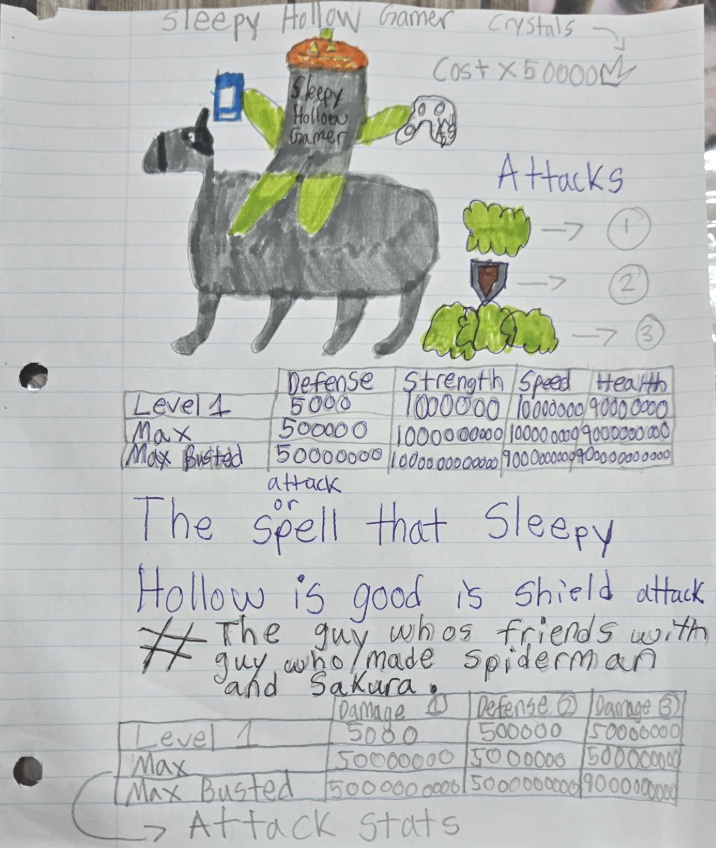 Sleepy Hollow Gamer Crystals
Cost x 50000
Sleepy
Hollow
Gamer
Attacks
1
2
3
Defense Strength Speed Health
Level 1 5000 1000000 10000000 90000000
Max 500000 100000000 100000000 9000000000
Max Busted 50000000
attack
or
The spell that Sleepy
Hollow is good is shield attack
# The guy whos friends with
guy who made spiderman
and Sakura.
Damage 1 Defense 2 Damage 3
Level 1 5000 500000 50000000
Max 50000000 5000000
Max Busted
Attack stats